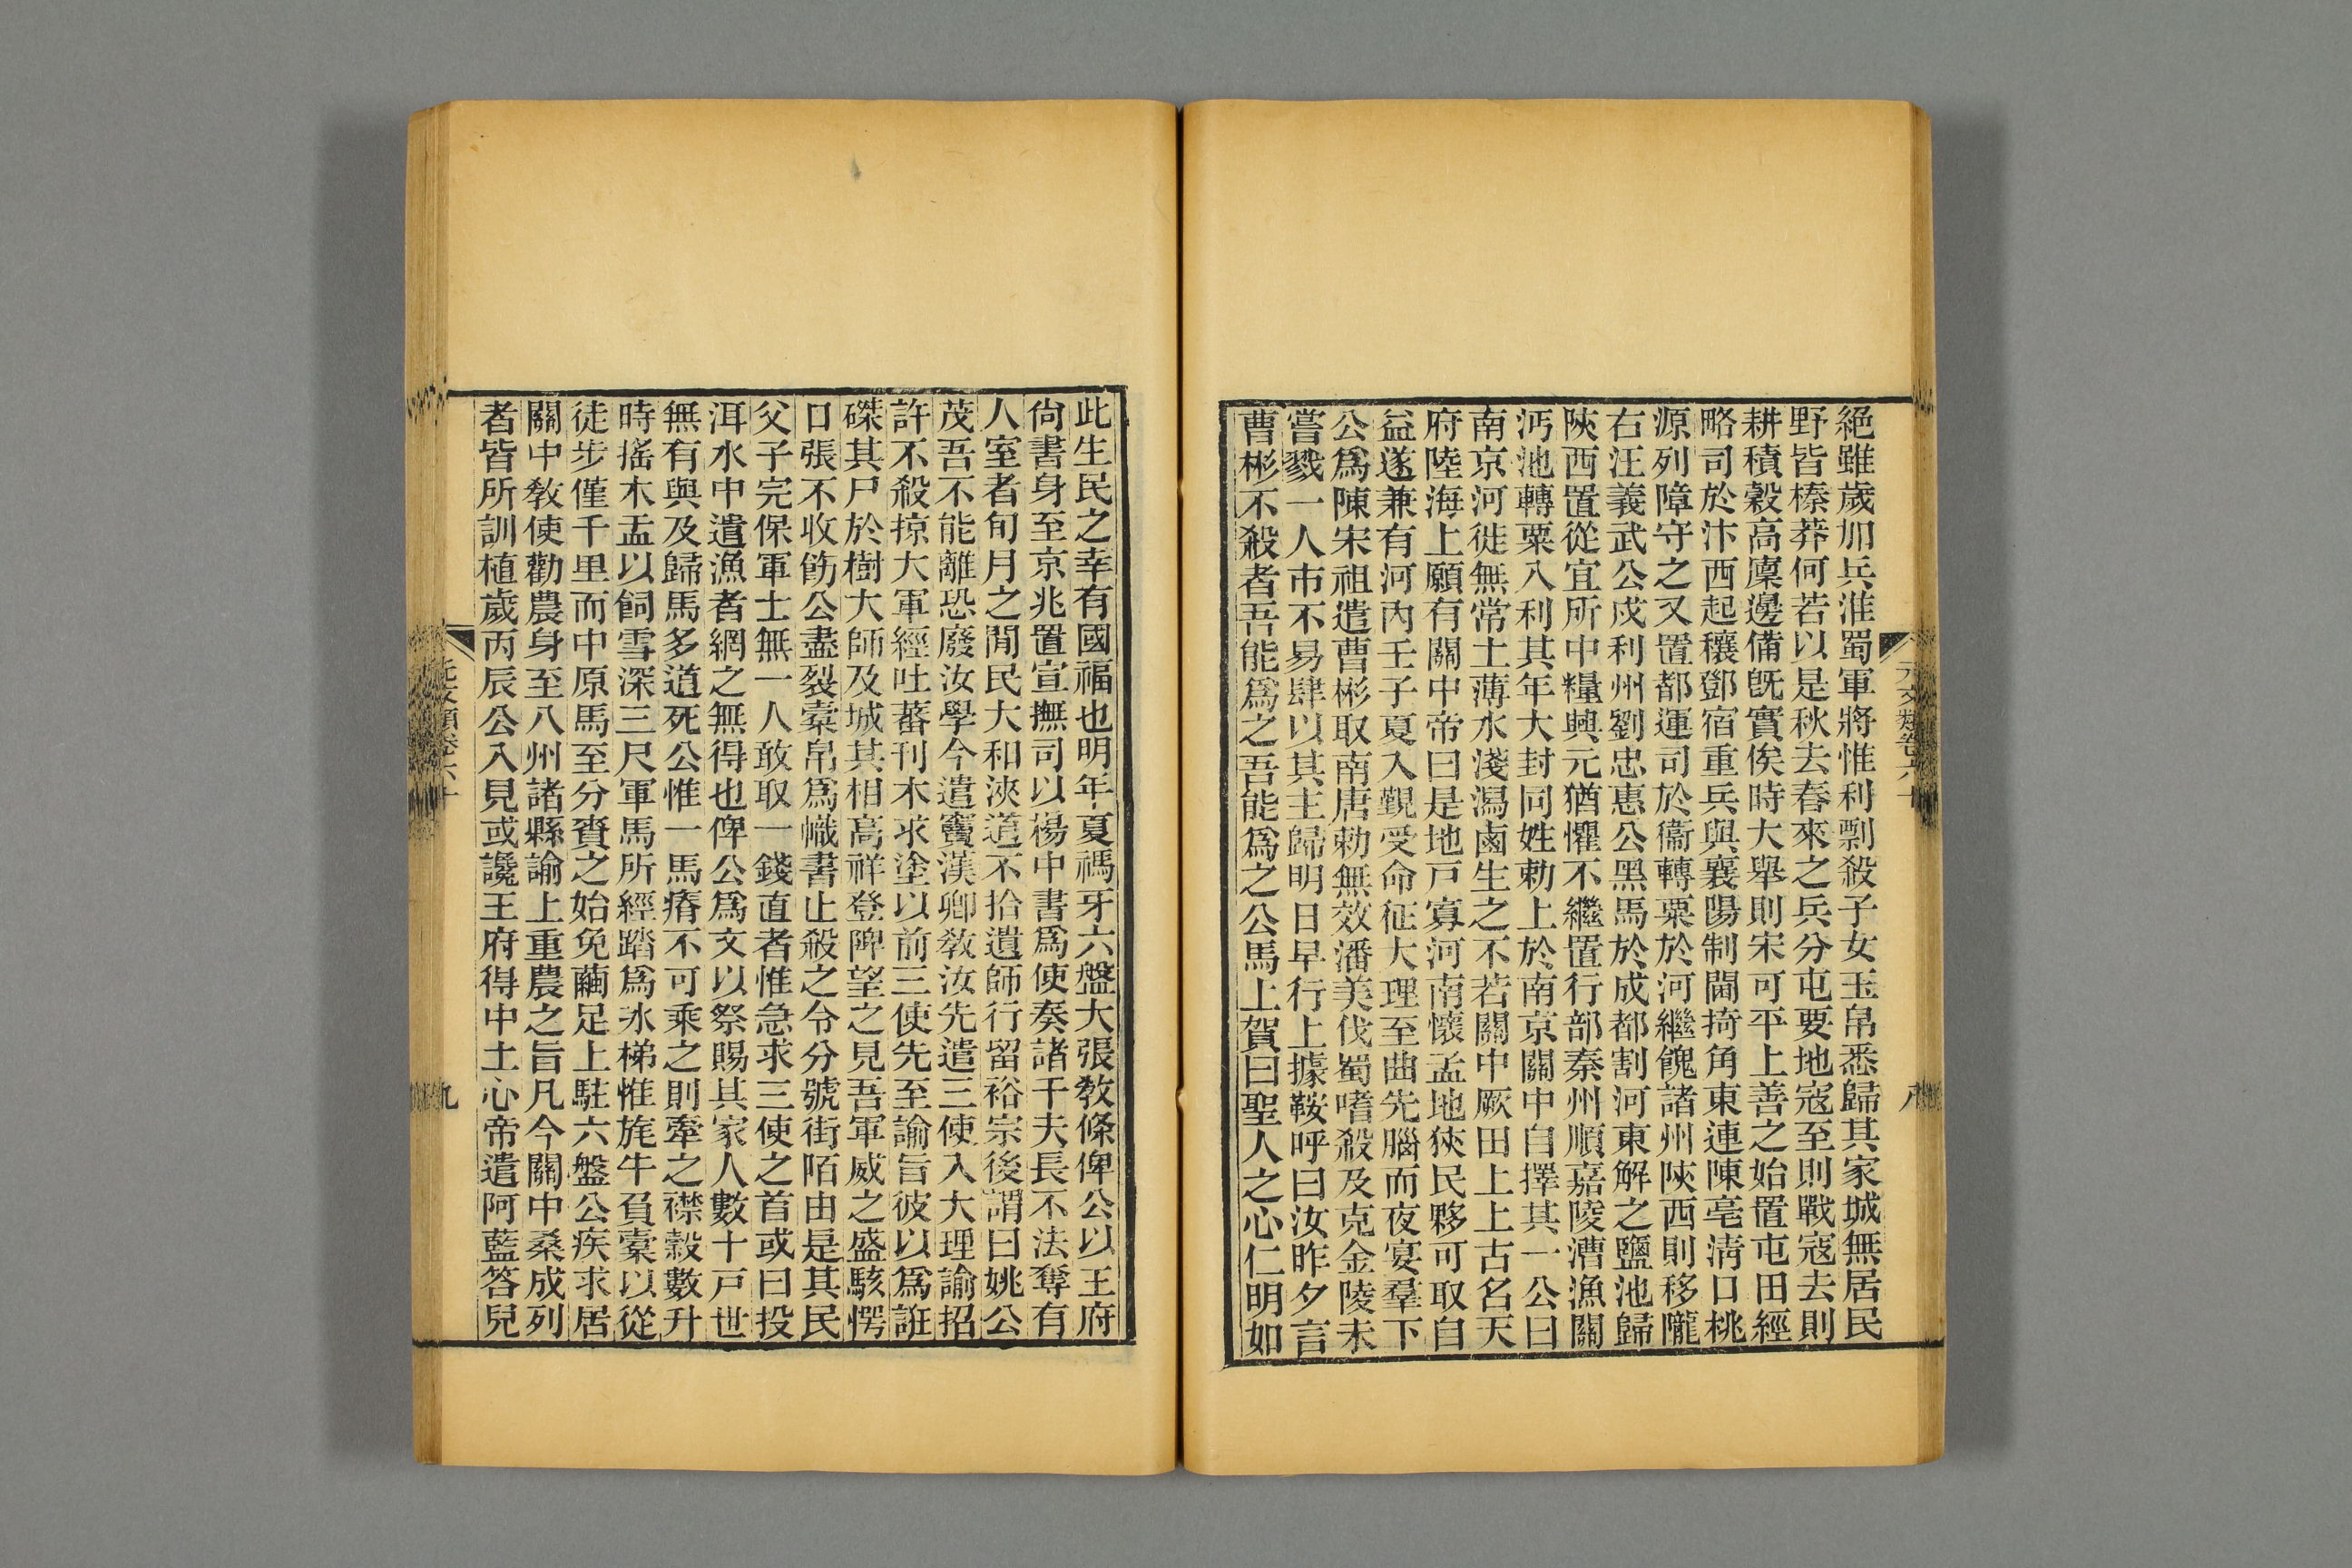 絕雖歲加兵淮蜀軍將惟利剽殺子女玉帛悉歸其家城無居民
野皆榛莽何若以是秋去春來之兵分屯要地寇至則戰寇去則
耕積穀高廩邊備旣實俟時大舉則宋可平上善之始置屯田經
略司於汴西起穰鄧宿重兵與襄陽制閫掎角東連陳亳淸口桃
源列障守之又置都運司於衞轉粟於河繼餽諸州陝西則移隴
右汪義武公戍利州劉忠惠公黑馬於成都割河東解之鹽池歸
陝西置從宜所中糧興元猶懼不繼置行部秦州順嘉陵漕漁關
沔池轉粟入利其年大封同姓勅上於南京關中自擇其一公曰
南京河徙無常土薄水淺潟鹵生之不若關中厥田上上古名天
府陸海上願有關中帝曰是地戸寡河南懷孟地狹民夥可取自
益遂兼有河內壬子夏入覲受命征大理至曲先腦而夜宴羣下
公爲陳宋祖遣曹彬取南唐勅無效潘美伐蜀嗜殺及克金陵未
嘗戮一人市不易肆以其主歸明日早行上據鞍呼曰汝昨夕言
曹彬不殺者吾能爲之吾能爲之公馬上賀曰聖人之心仁明如
元文類卷六十
八
此生民之幸有國福也明年夏禡牙六盤大張敎條俾公以王府
尙書身至京兆置宣撫司以楊中書爲使奏諸千夫長不法奪有
人室者旬月之閒民大和浹道不拾遺師行留裕宗後謂曰姚公
茂吾不能離恐廢汝學今遣竇漢卿敎汝先遣三使入大理諭招
許不殺掠大軍經吐蕃刊木求塗以前三使先至諭旨彼以爲誑
磔其尸於樹大師及城其相高祥登陴望之見吾軍威之盛駭愕
口張不收飭公盡裂橐帛爲幟書止殺之令分號街陌由是其民
父子完保軍士無一人敢取一錢直者惟急求三使之首或曰投
洱水中遣漁者網之無得也俾公爲文以祭賜其家人數十戸世
無有與及歸馬多道死公惟一馬瘠不可乘之則牽之襟穀數升
時搖木盂以飼雪深三尺軍馬所經踏爲氷梯惟旄牛負橐以從
徒步僅千里而中原馬至分賚之始免繭足上駐六盤公疾求居
關中敎使勸農身至八州諸縣諭上重農之旨凡今關中桑成列
者皆所訓植歲丙辰公入見或讒王府得中土心帝遣阿藍答兒
元文類卷六十
九